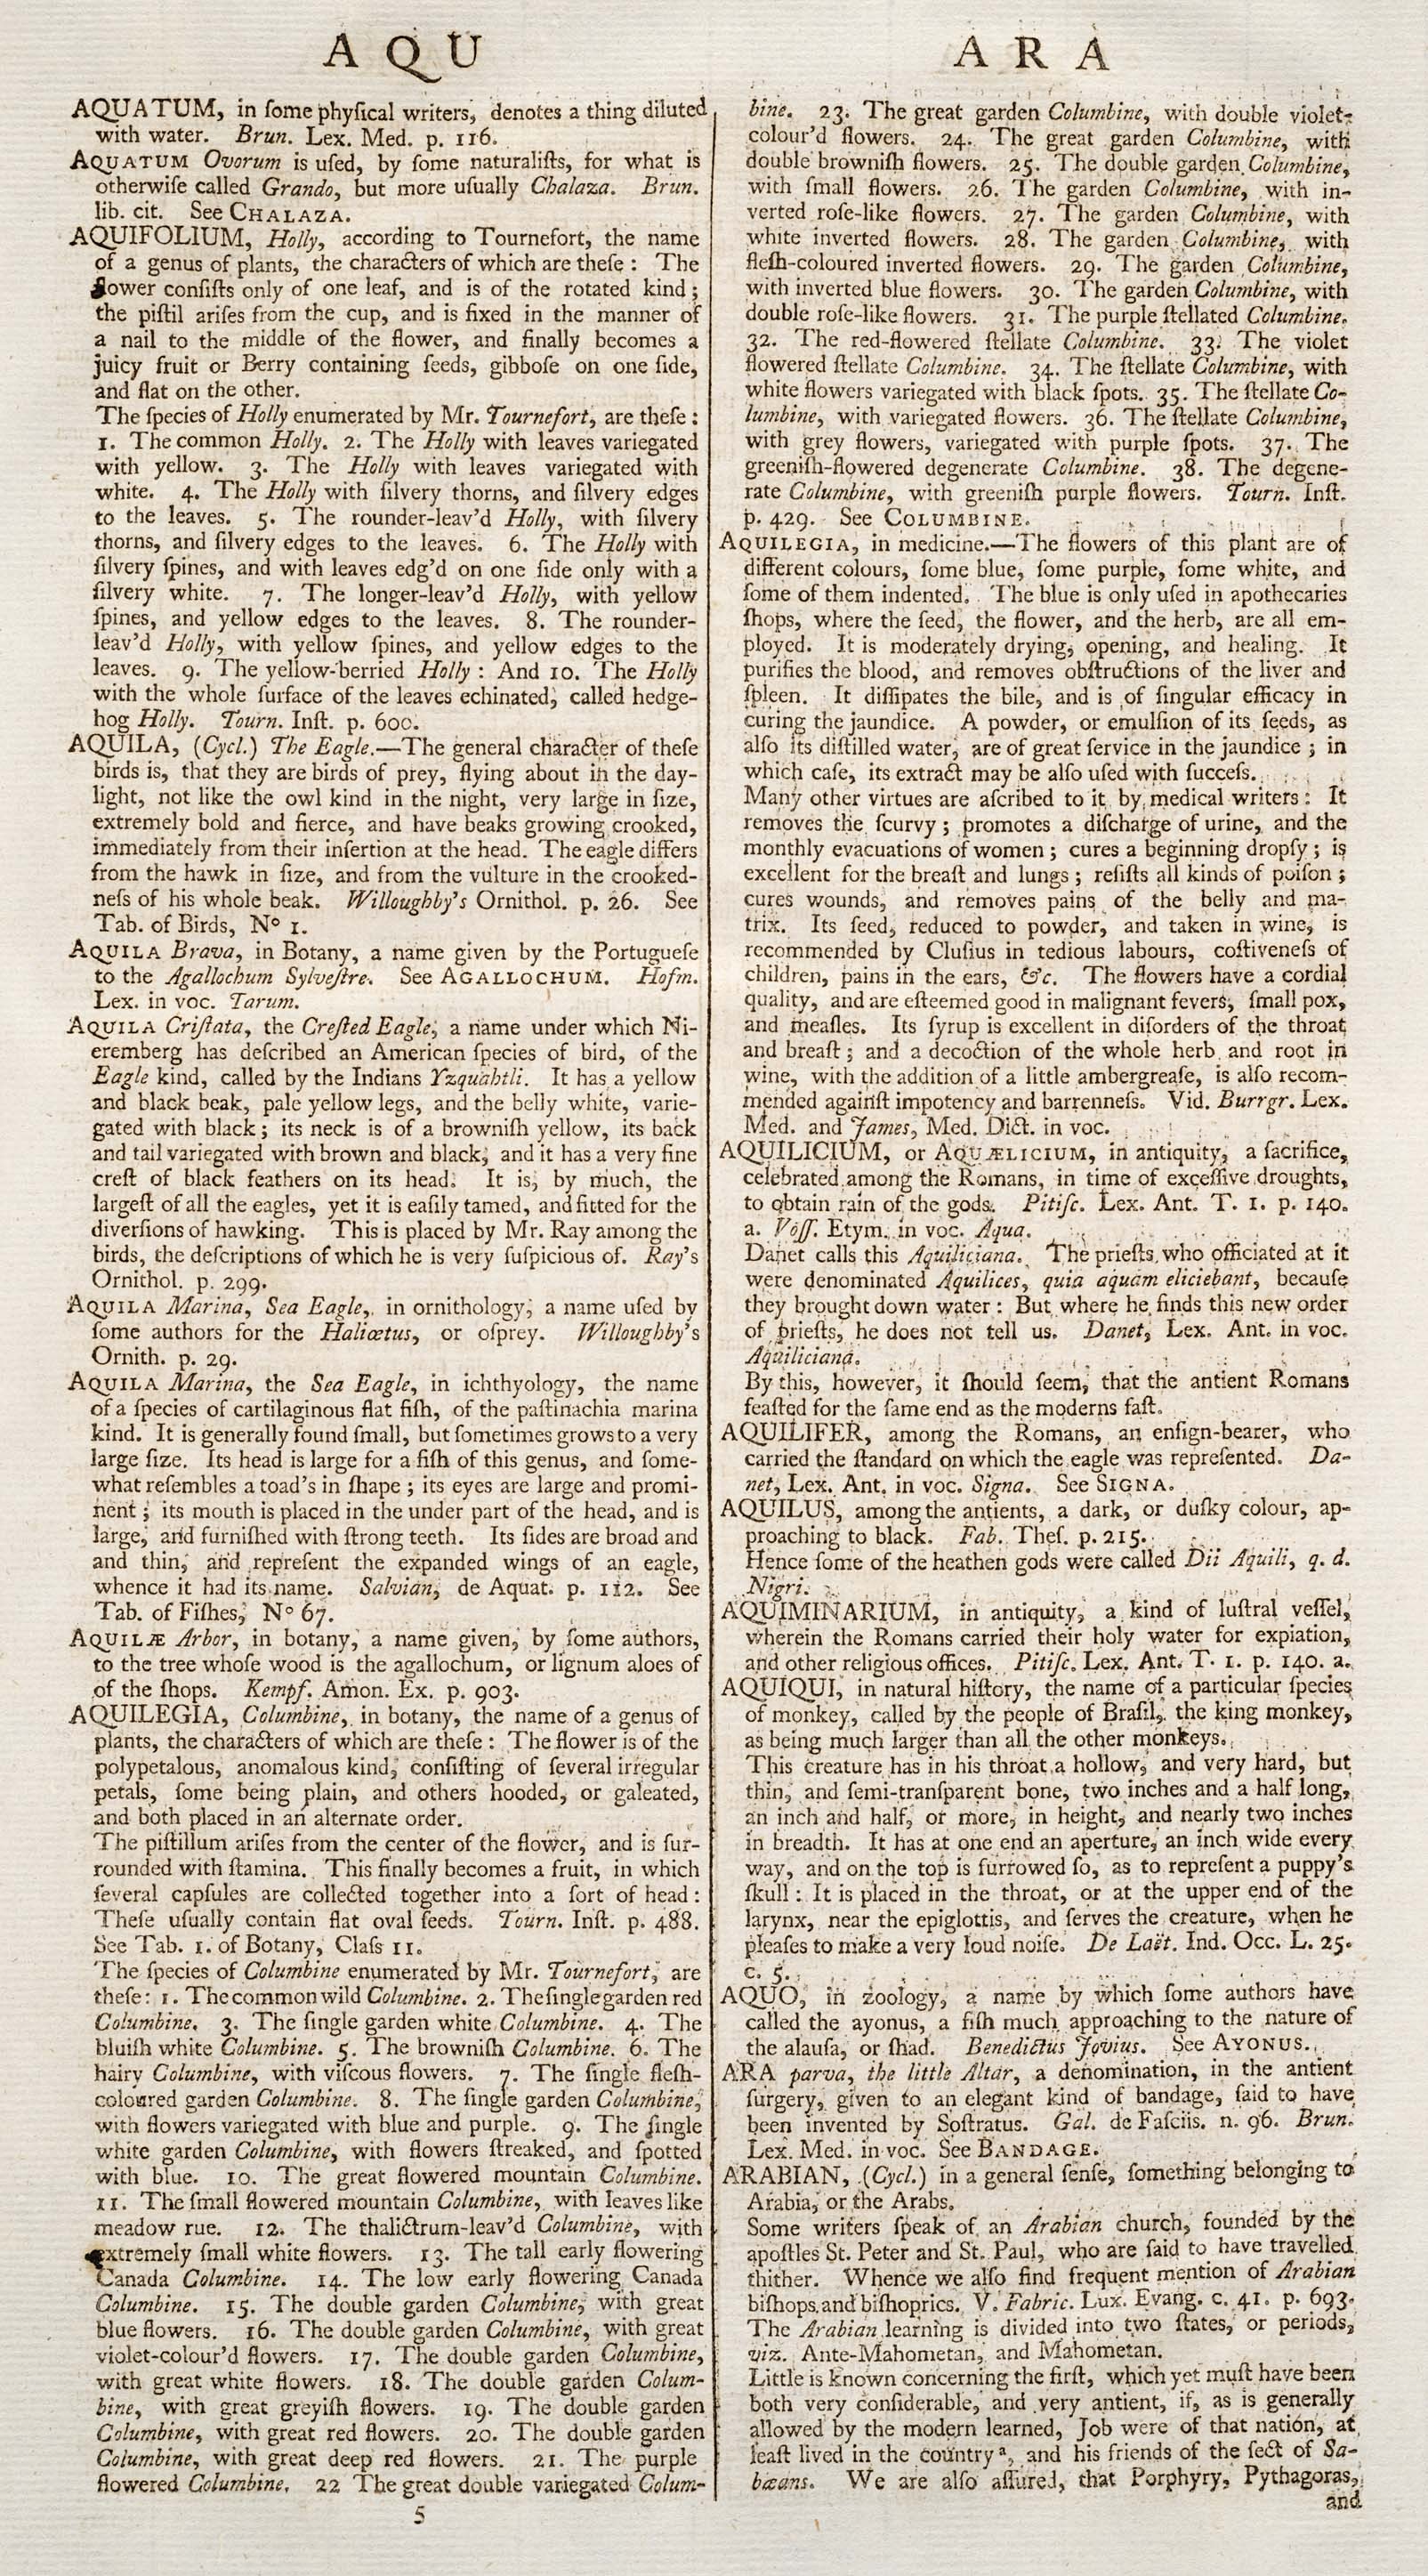 AQU
AQUATUM, in ſome phyſical writers, denotes a thing diluted
with water. Brun. Lex. Med. p. 116.
AQUATUM Ovorum is uſed, by ſome naturaliſts, for what is
otherwiſe called Grando, but more uſually Chalaza. Brun.
lib. cit. See CHALAZA.
AQUIFOLIUM, Holly, according to Tournefort, the name
of a genus of plants, the characters of which are theſe: The
flower conſiſts only of one leaf, and is of the rotated kind;
the piſtil ariſes from the cup, and is fixed in the manner of
a nail to the middle of the flower, and finally becomes a
juicy fruit or Berry containing ſeeds, gibboſe on one ſide,
and flat on the other.
The ſpecies of Holly enumerated by Mr. Tournefort, are theſe:
1. The common Holly. 2. The Holly with leaves variegated
with yellow. 3. The Holly with leaves variegated with
white. 4. The Holly with ſilvery thorns, and ſilvery edges
to the leaves. 5. The rounder-leav'd Holly, with ſilvery
thorns, and ſilvery edges to the leaves. 6. The Holly with
ſilvery ſpines, and with leaves edg'd on one ſide only with a
ſilvery white. 7. The longer-leav'd Holly, with yellow
ſpines, and yellow edges to the leaves. 8. The rounder-
leav'd Holly, with yellow ſpines, and yellow edges to the
leaves. 9. The yellow-berried Holly: And 10. The Holly
with the whole ſurface of the leaves echinated, called hedge-
hog Holly. Tourn. Inſt. p. 600.
AQUILA, (Cycl.) The Eagle.—The general character of theſe
birds is, that they are birds of prey, flying about in the day-
light, not like the owl kind in the night, very large in ſize,
extremely bold and fierce, and have beaks growing crooked,
immediately from their inſertion at the head. The eagle differs
from the hawk in ſize, and from the vulture in the crooked-
neſs of his whole beak. Willoughby's Ornithol. p. 26. See
Tab. of Birds, N° 1.
AQUILA Brava, in Botany, a name given by the Portugueſe
to the Agallochum Sylveſtre. See AGALLOCHUM. Hofm.
Lex. in voc. Tarum.
AQUILA Criſtata, the Creſted Eagle, a name under which Ni-
eremberg has deſcribed an American ſpecies of bird, of the
Eagle kind, called by the Indians Yzquahtli. It has a yellow
and black beak, pale yellow legs, and the belly white, varie-
gated with black; its neck is of a browniſh yellow, its back
and tail variegated with brown and black, and it has a very fine
creſt of black feathers on its head. It is, by much, the
largeſt of all the eagles, yet it is eaſily tamed, and fitted for the
diverſions of hawking. This is placed by Mr. Ray among the
birds, the deſcriptions of which he is very ſuſpicious of. Ray's
Ornithol. p. 299.
AQUILA Marina, Sea Eagle, in ornithology, a name uſed by
ſome authors for the Haliœtus, or oſprey. Willoughby's
Ornith. p. 29.
AQUILA Marina, the Sea Eagle, in ichthyology, the name
of a ſpecies of cartilaginous flat fiſh, of the paſtinachia marina
kind. It is generally found ſmall, but ſometimes grows to a very
large ſize. Its head is large for a fiſh of this genus, and ſome-
what reſembles a toad's in ſhape; its eyes are large and promi-
nent; its mouth is placed in the under part of the head, and is
large, and furniſhed with ſtrong teeth. Its ſides are broad and
and thin, and repreſent the expanded wings of an eagle,
whence it had its name. Salvian, de Aquat. p. 112. See
Tab. of Fiſhes, N° 67.
AQUILÆ Arbor, in botany, a name given, by ſome authors,
to the tree whoſe wood is the agallochum, or lignum aloes of
of the ſhops. Kempf. Amon. Ex. p. 903.
AQUILEGIA, Columbine, in botany, the name of a genus of
plants, the characters of which are theſe: The flower is of the
polypetalous, anomalous kind, conſiſting of ſeveral irregular
petals, ſome being plain, and others hooded, or galeated,
and both placed in an alternate order.
The piſtillum ariſes from the center of the flower, and is ſur-
rounded with ſtamina. This finally becomes a fruit, in which
ſeveral capſules are collected together into a ſort of head:
Theſe uſually contain flat oval ſeeds. Tourn. Inſt. p. 488.
See Tab. 1. of Botany, Claſs 11.
The ſpecies of Columbine enumerated by Mr. Tournefort, are
theſe: 1. The common wild Columbine. 2. The ſingle garden red
Columbine. 3. The ſingle garden white Columbine. 4. The
bluiſh white Columbine. 5. The browniſh Columbine. 6. The
hairy Columbine, with viſcous flowers. 7. The ſingle fleſh-
coloured garden Columbine. 8. The ſingle garden Columbine,
with flowers variegated with blue and purple. 9. The ſingle
white garden Columbine, with flowers ſtreaked, and ſpotted
with blue. 10. The great flowered mountain Columbine.
11. The ſmall flowered mountain Columbine, with leaves like
meadow rue. 12. The thalictrum-leav'd Columbine, with
extremely ſmall white flowers. 13. The tall early flowering
Canada Columbine. 14. The low early flowering Canada
Columbine. 15. The double garden Columbine, with great
blue flowers. 16. The double garden Columbine, with great
violet-colour'd flowers. 17. The double garden Columbine,
with great white flowers. 18. The double garden Colum-
bine, with great greyiſh flowers. 19. The double garden
Columbine, with great red flowers. 20. The double garden
Columbine, with great deep red flowers. 21. The purple
flowered Columbine. 22 The great double variegated Colum-
5
ARA
bine. 23. The great garden Columbine, with double violet-
colour'd flowers. 24. The great garden Columbine, with
double browniſh flowers. 25. The double garden Columbine,
with ſmall flowers. 26. The garden Columbine, with in-
verted roſe-like flowers. 27. The garden Columbine, with
white inverted flowers. 28. The garden Columbine, with
fleſh-coloured inverted flowers. 29. The garden Columbine,
with inverted blue flowers. 30. The garden Columbine, with
double roſe-like flowers. 31. The purple ſtellated Columbine.
32. The red-flowered ſtellate Columbine. 33. The violet
flowered ſtellate Columbine. 34. The ſtellate Columbine, with
white flowers variegated with black ſpots. 35. The ſtellate Co-
lumbine, with variegated flowers. 36. The ſtellate Columbine,
with grey flowers, variegated with purple ſpots. 37. The
greeniſh-flowered degenerate Columbine. 38. The degene-
rate Columbine, with greeniſh purple flowers. Tourn. Inſt.
p. 429. See COLUMBINE.
AQUILEGIA, in medicine.—The flowers of this plant are of
different colours, ſome blue, ſome purple, ſome white, and
ſome of them indented. The blue is only uſed in apothecaries
ſhops, where the ſeed, the flower, and the herb, are all em-
ployed. It is moderately drying, opening, and healing. It
purifies the blood, and removes obſtructions of the liver and
ſpleen. It diſſipates the bile, and is of ſingular efficacy in
curing the jaundice. A powder, or emulſion of its ſeeds, as
alſo its diſtilled water, are of great ſervice in the jaundice; in
which caſe, its extract may be alſo uſed with ſucceſs.
Many other virtues are aſcribed to it by medical writers: It
removes the ſcurvy; promotes a diſcharge of urine, and the
monthly evacuations of women; cures a beginning dropſy; is
excellent for the breaſt and lungs; reſiſts all kinds of poiſon;
cures wounds, and removes pains of the belly and ma-
trix. Its ſeed, reduced to powder, and taken in wine, is
recommended by Cluſius in tedious labours, coſtiveneſs of
children, pains in the ears, &c. The flowers have a cordial
quality, and are eſteemed good in malignant fevers, ſmall pox,
and meaſles. Its ſyrup is excellent in diſorders of the throat
and breaſt; and a decoction of the whole herb and root in
wine, with the addition of a little ambergreaſe, is alſo recom-
mended againſt impotency and barrenneſs. Vid. Burrgr. Lex.
Med. and James, Med. Dict. in voc.
AQUILICIUM, or AQUÆLICIUM, in antiquity, a ſacrifice,
celebrated among the Romans, in time of exceſſive droughts,
to obtain rain of the gods. Pitiſc. Lex. Ant. T. 1. p. 140.
a. Voſſ. Etym. in voc. Aqua.
Danet calls this Aquiliciana. The prieſts who officiated at it
were denominated Aquilices, quia aquam eliciebant, becauſe
they brought down water: But where he finds this new order
of prieſts, he does not tell us. Danet, Lex. Ant. in voc.
Aquiliciana.
By this, however, it ſhould ſeem, that the antient Romans
feaſted for the ſame end as the moderns faſt.
AQUILIFER, among the Romans, an enſign-bearer, who
carried the ſtandard on which the eagle was repreſented. Da-
net, Lex. Ant. in voc. Signa. See SIGNA.
AQUILUS, among the antients, a dark, or duſky colour, ap-
proaching to black. Fab. Theſ. p. 215.
Hence ſome of the heathen gods were called Dii Aquili, q. d.
Nigri.
AQUIMINARIUM, in antiquity, a kind of luſtral veſſel,
wherein the Romans carried their holy water for expiation,
and other religious offices. Pitiſc. Lex. Ant. T. 1. p. 140. a.
AQUIQUI, in natural hiſtory, the name of a particular ſpecies
of monkey, called by the people of Braſil, the king monkey,
as being much larger than all the other monkeys.
This creature has in his throat a hollow, and very hard, but
thin, and ſemi-tranſparent bone, two inches and a half long,
an inch and half, or more, in height, and nearly two inches
in breadth. It has at one end an aperture, an inch wide every
way, and on the top is furrowed ſo, as to repreſent a puppy's
ſkull: It is placed in the throat, or at the upper end of the
larynx, near the epiglottis, and ſerves the creature, when he
pleaſes to make a very loud noiſe. De Laët. Ind. Occ. L. 25.
c. 5.
AQUO, in zoology, a name by which ſome authors have
called the ayonus, a fiſh much approaching to the nature of
the alauſa, or ſhad. Benedictus Jovius. See AYONUS.
ARA parva, the little Altar, a denomination, in the antient
ſurgery, given to an elegant kind of bandage, ſaid to have
been invented by Soſtratus. Gal. de Faſciis. n. 96. Brun.
Lex. Med. in voc. See BANDAGE.
ARABIAN, (Cycl.) in a general ſenſe, ſomething belonging to
Arabia, or the Arabs.
Some writers ſpeak of an Arabian church, founded by the
apoſtles St. Peter and St. Paul, who are ſaid to have travelled
thither. Whence we alſo find frequent mention of Arabian
biſhops and biſhoprics. V. Fabric. Lux. Evang. c. 41. p. 693.
The Arabian learning is divided into two ſtates, or periods,
viz. Ante-Mahometan, and Mahometan.
Little is known concerning the firſt, which yet muſt have been
both very conſiderable, and very antient, if, as is generally
allowed by the modern learned, Job were of that nation, at
leaſt lived in the country ᵃ, and his friends of the ſect of Sa-
bæans. We are alſo aſſured, that Porphyry, Pythagoras,
and